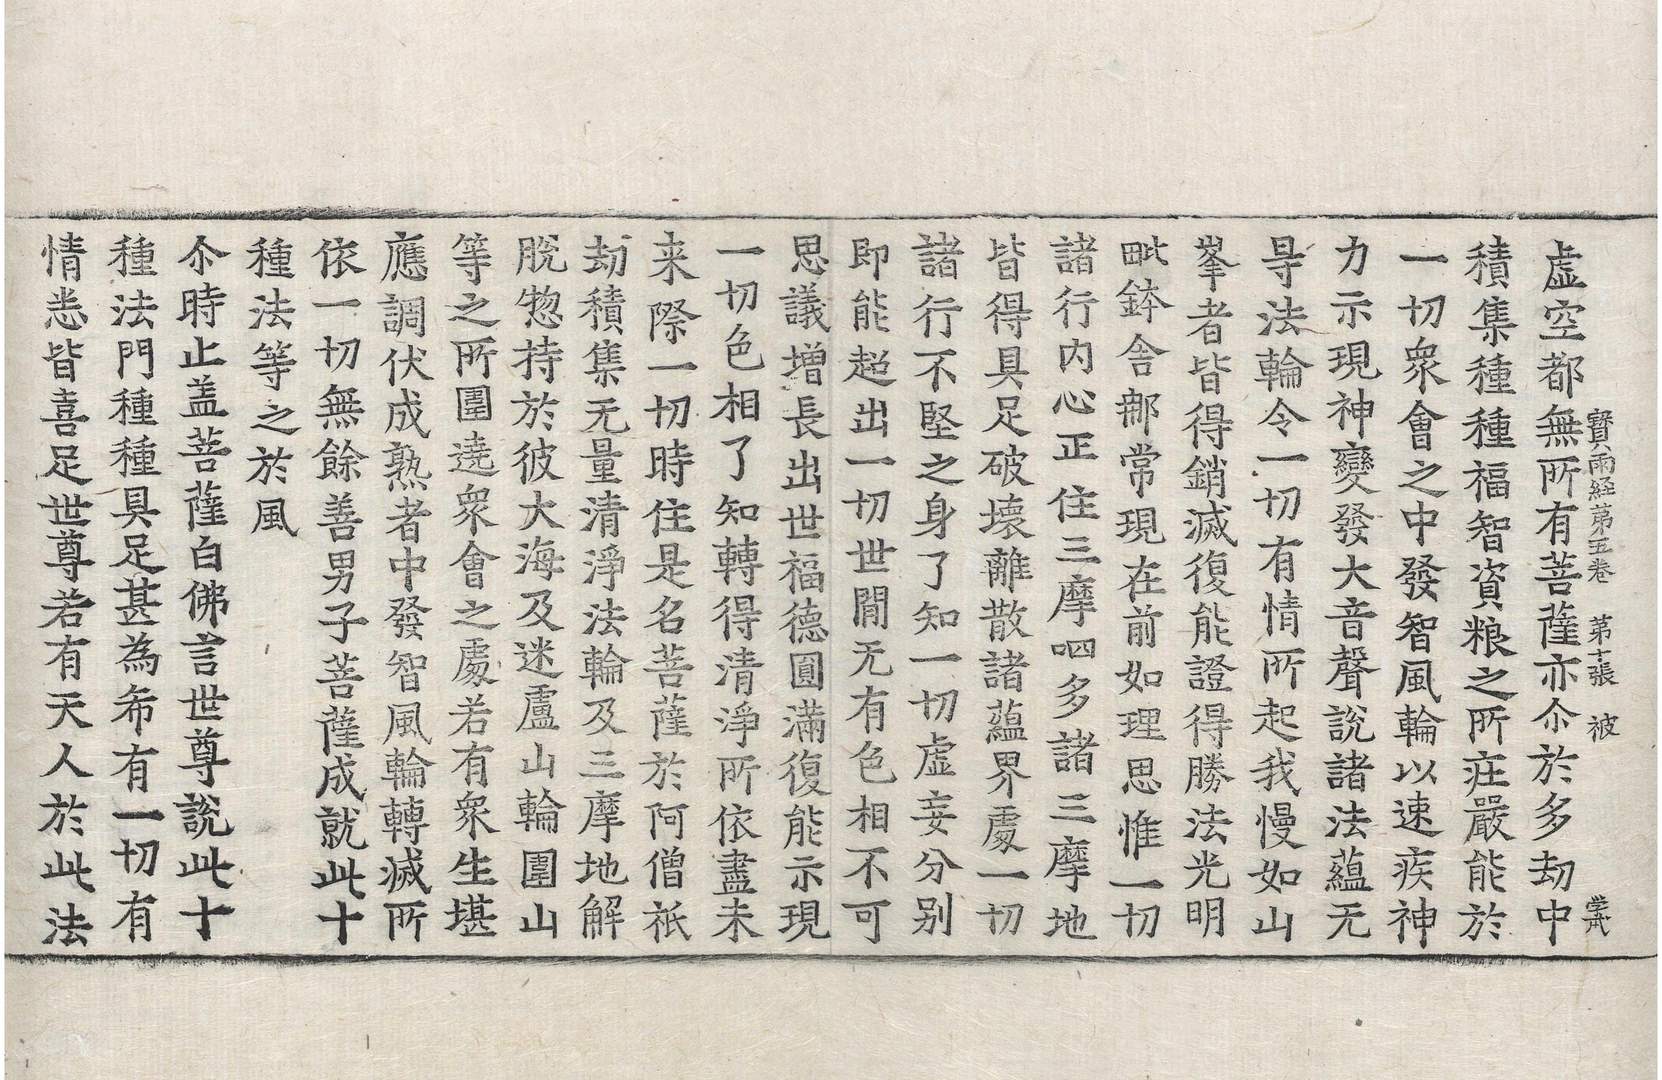 寶雨経第五卷 第十張 被
虛空都無所有菩薩亦尒於多劫中
積集種種福智資粮之所庄嚴能於
一切衆會之中發智風輪以速疾神
力示現神變發大音聲說諸法蘊无
㝵法輪令一切有情所起我慢如山
峯者皆得銷滅復能證得勝法光明
毗鉢舍郍常現在前如理思惟一切
諸行内心正住三摩呬多諸三摩地
皆得具足破壞離散諸蘊界處一切
諸行不堅之身了知一切虛妄分别
即能超出一切世間无有色相不可
思議增長出世福德圓滿復能示現
一切色相了知轉得清淨所依盡未
来際一切時住是名菩薩於阿僧祇
劫積集无量清淨法輪及三摩地解
脫惣持於彼大海及迷盧山輪圍山
等之所圍遶衆會之處若有衆生堪
應調伏成熟者中發智風輪轉滅所
依一切無餘善男子菩薩成就此十
種法等之於風
尒時止盖菩薩白佛言世尊說此十
種法門種種具足甚為希有一切有
情悉皆喜足世尊若有天人於此法